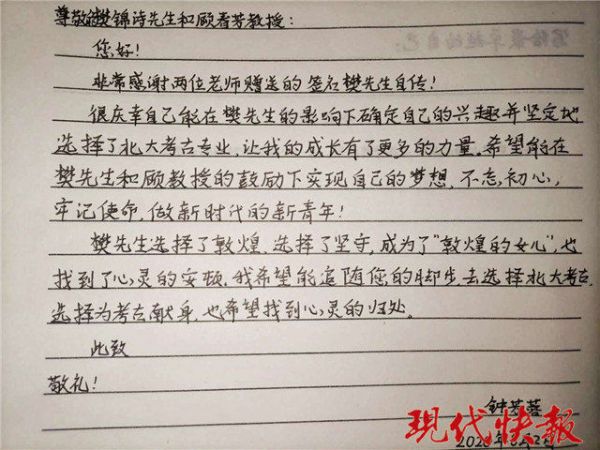 尊敬的樊锦诗先生和顾春芳教授:
您好!
非常感谢两位老师赠送的签名樊先生自传!
很庆幸自己能在樊先生的影响下确定自己的兴趣并坚定地
选择了北大考古专业,让我的成长有了更多的力量。希望能在
樊先生和顾教授的鼓励下实现自己的梦想,不忘初心,
牢记使命,做新时代的新青年!
樊先生选择了敦煌,选择了坚守,成为了"敦煌的女儿",也
找到了心灵的安顿。我希望能追随您的脚步,去选择北大考古,
选择为考古献身,也希望找到心灵的归处。
此致
敬礼!
钟芳蓉
现代快报